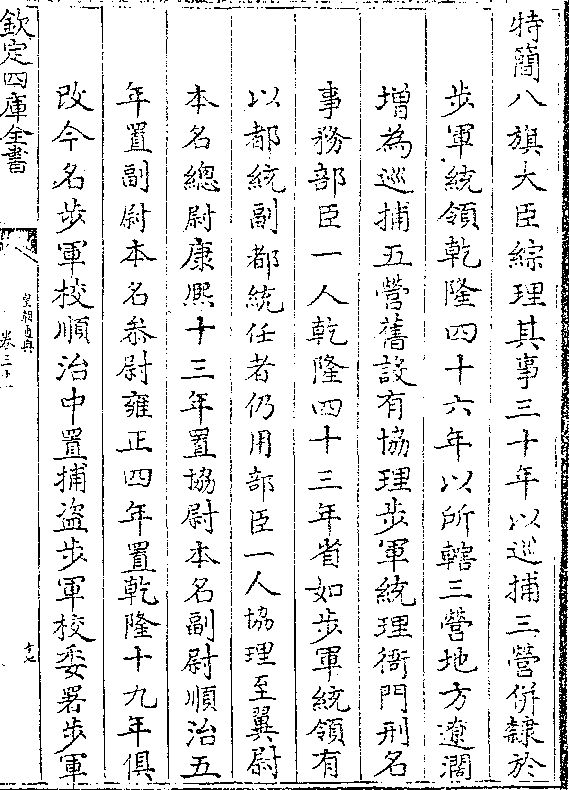 特簡八旗大臣綜理其事三十年以巡捕三營併隸於
步軍統領乾隆四十六年以所轄三營地方遼濶
增為巡捕五營舊設有協理步軍統理衙門刑名
事務部臣一人乾隆四十三年省如步軍統領有
以都統副都統任者仍用部臣一人協理至翼尉
本名總尉康熙十三年置協尉本名副尉順治五
年置副尉本名叅尉雍正四年置乾隆十九年俱
改今名步軍校順治中置捕盗步軍校委署步軍
欽定四庫全書
皇朝通典
卷三十一
十七